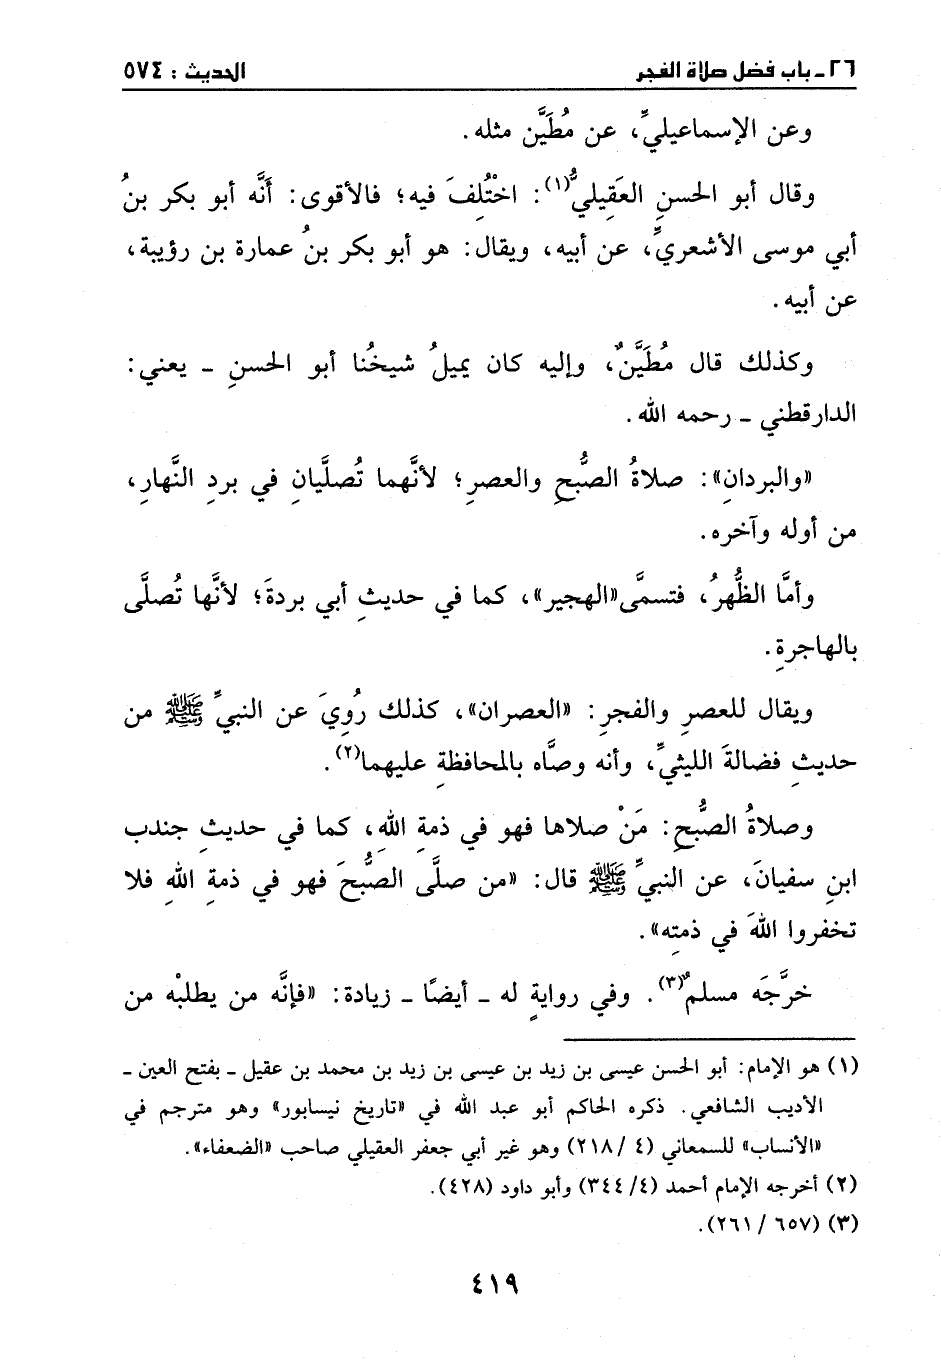 ٢٦ ـ باب فضل صلاة الفجر الحديث : ٥٧٤
وعن الإسماعيليِّ، عن مُطَيَّن مثله.
وقال أبو الحسنِ العَقِيليُّ(١): اخْتُلِفَ فيه؛ فالأقوى: أنَّه أبو بكر بنُ
أبي موسى الأشعريِّ، عن أبيه، ويقال: هو أبو بكر بنُ عمارة بن رؤيبة،
عن أبيه.
وكذلك قال مُطَيَّنٌ، وإليه كان يميلُ شيخُنا أبو الحسنِ ـ يعني:
الدارقطني ـ رحمه الله.
«والبردانِ»: صلاةُ الصُّبحِ والعصرِ؛ لأنَّهما تُصلَّيانِ في بردِ النَّهارِ،
من أوله وآخره.
وأمَّا الظُّهرُ، فتسمَّى«الهجير»، كما في حديثِ أبي بردةَ؛ لأنَّها تُصلَّى
بالهاجرةِ.
ويقال للعصرِ والفجرِ: «العصران»، كذلك رُوِيَ عن النبيِّ ﷺ من
حديثِ فضالةَ الليثيِّ، وأنه وصَّاه بالمحافظةِ عليهما(٢).
وصلاةُ الصُّبحِ: مَنْ صلاها فهو في ذمةِ اللهِ، كما في حديثِ جندب
ابنِ سفيانَ، عن النبيِّ ﷺ قال: «من صلَّى الصُّبحَ فهو في ذمةِ اللهِ فلا
تخفروا اللهَ في ذمتِه».
خرَّجَه مسلمٌ(٣). وفي روايةٍ له ـ أيضًا ـ زيادة: «فإنَّه من يطلبْه من
(١) هو الإمام: أبو الحسن عيسى بن زيد بن عيسى بن زيد بن محمد بن عقيل ـ بفتح العين ـ
الأديب الشافعي. ذكره الحاكم أبو عبد الله في «تاريخ نيسابور» وهو مترجم في
«الأنساب» للسمعاني (٤ /٢١٨) وهو غير أبي جعفر العقيلي صاحب «الضعفاء».
(٢) أخرجه الإمام أحمد (٤/ ٣٤٤) وأبو داود (٤٢٨).
(٣) (٦٥٧ / ٢٦١).
٤١٩